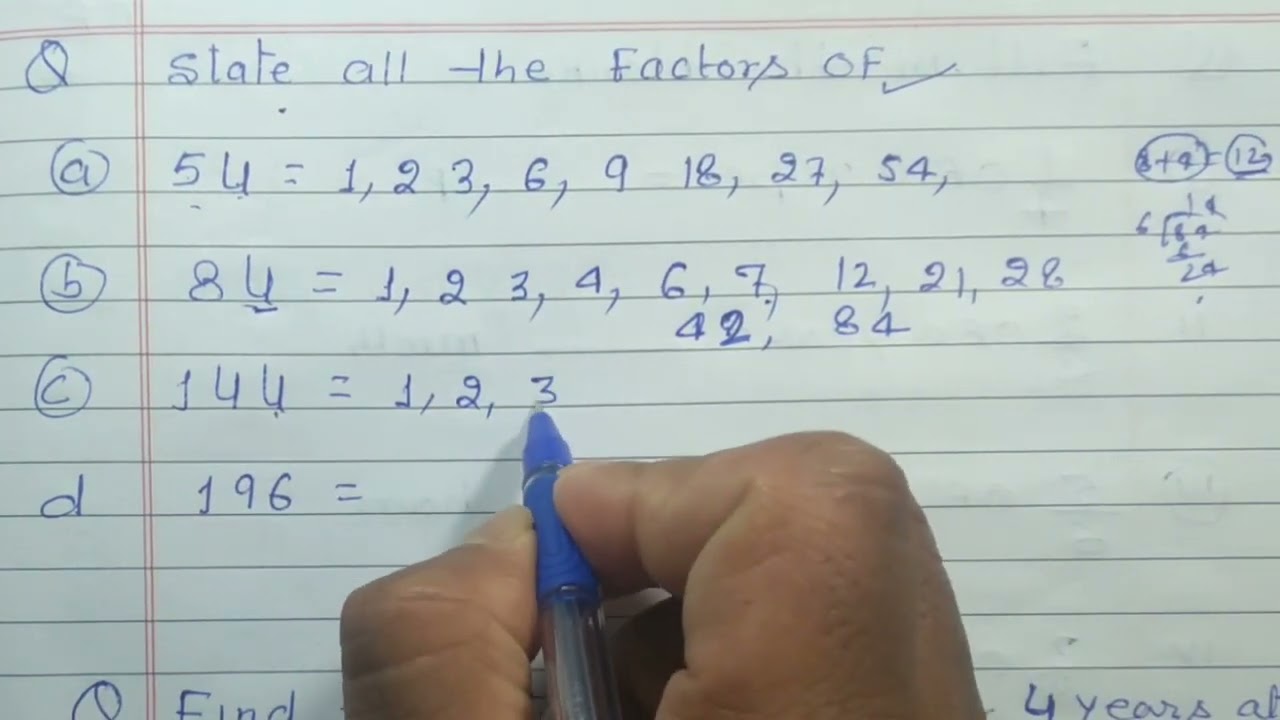 Q State all the Factors OF
a 54 = 1, 2 3, 6, 9 18, 27, 54,
8+4 = 12
14
6 84
6
24
b 84 = 1, 2 3, 4, 6, 7, 12, 21, 28
42, 84
c 144 = 1, 2, 3
d 196 =
Q Find
4 years